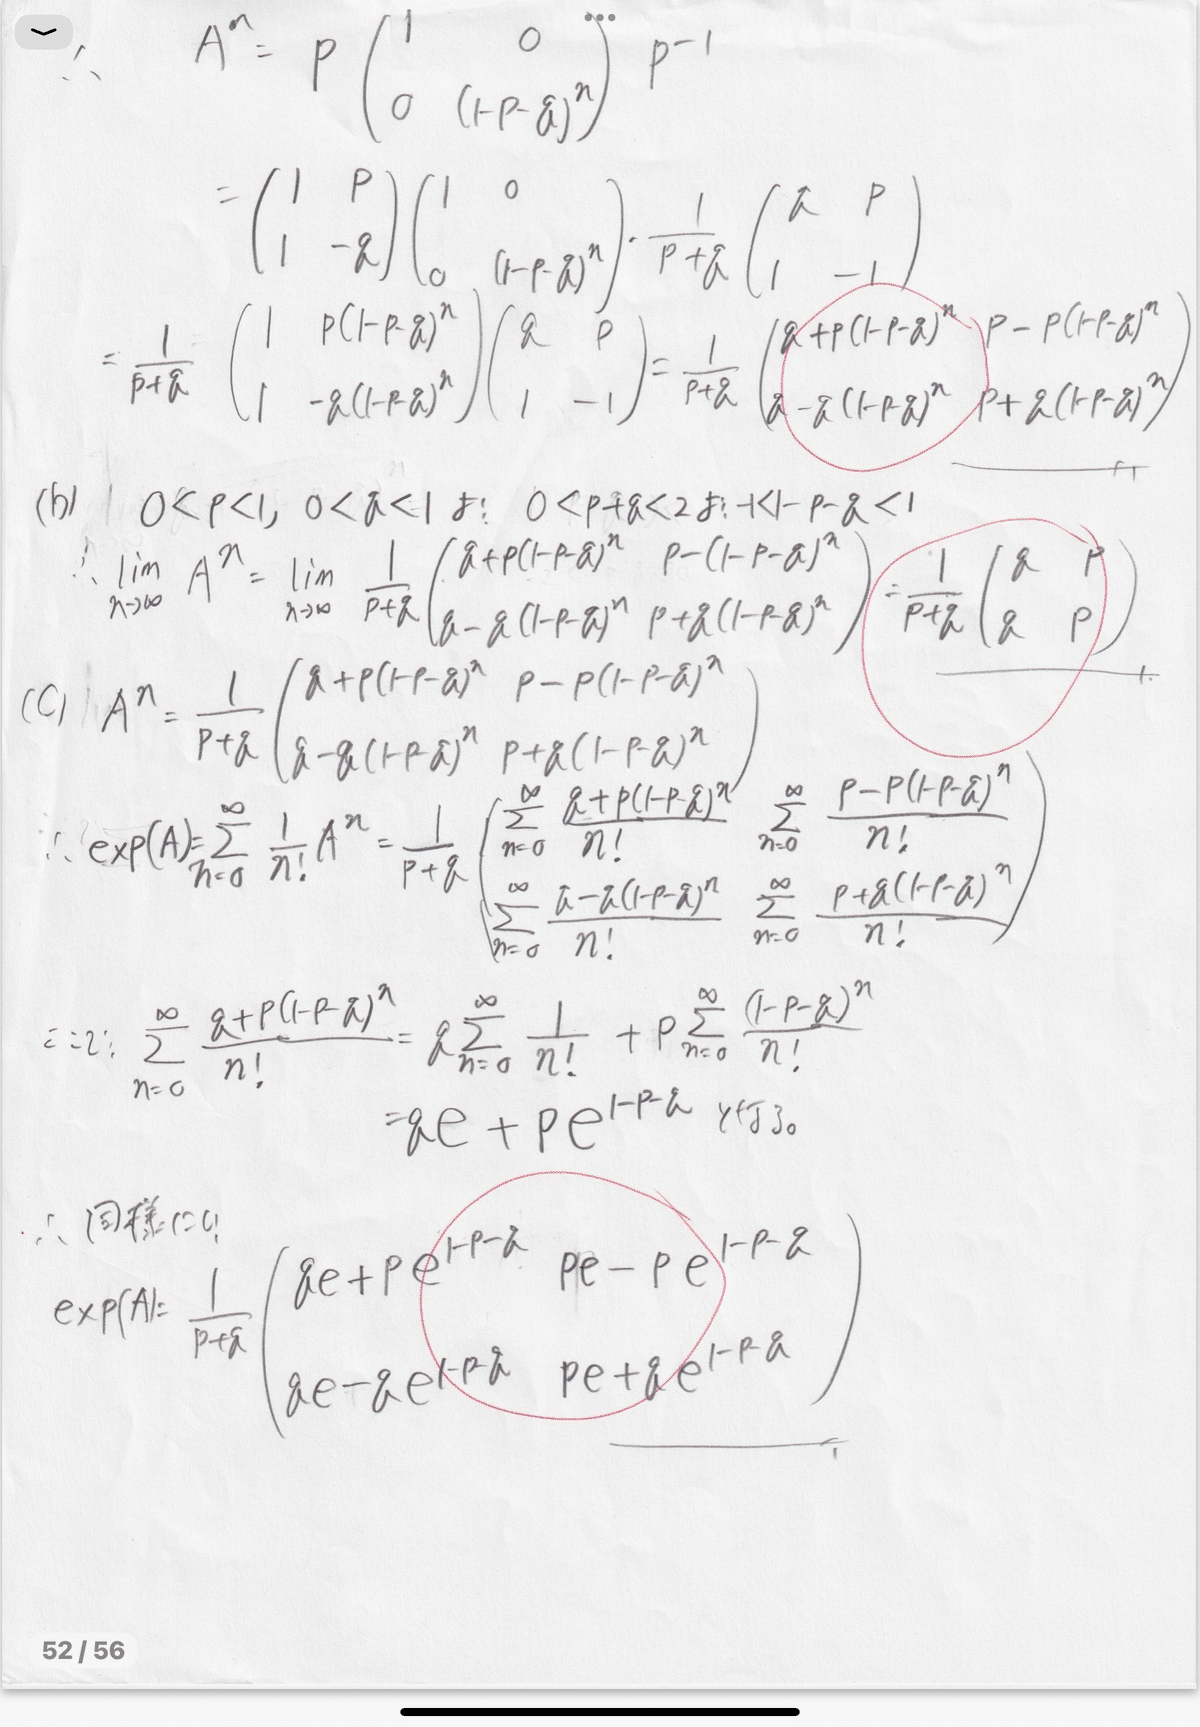 ∴ Aⁿ = P ( 1 0 / 0 (1-p-q)ⁿ ) P⁻¹
= ( 1 p / 1 -q ) ( 1 0 / 0 (1-p-q)ⁿ ) · 1/(p+q) ( q p / 1 -1 )
= 1/(p+q) ( 1 p(1-p-q)ⁿ / 1 -q(1-p-q)ⁿ ) ( q p / 1 -1 ) = 1/(p+q) ( q+p(1-p-q)ⁿ p-p(1-p-q)ⁿ / q-q(1-p-q)ⁿ p+q(1-p-q)ⁿ )
(b) 0<p<1, 0<q<1 より 0<p+q<2 より -1<1-p-q<1
∴ lim n→∞ Aⁿ = lim n→∞ 1/(p+q) ( q+p(1-p-q)ⁿ p-(1-p-q)ⁿ / q-q(1-p-q)ⁿ p+q(1-p-q)ⁿ ) = 1/(p+q) ( q p / q p )
(c) Aⁿ = 1/(p+q) ( q+p(1-p-q)ⁿ p-p(1-p-q)ⁿ / q-q(1-p-q)ⁿ p+q(1-p-q)ⁿ )
∴ exp(A) = ∑ n=0 ∞ 1/n! Aⁿ = 1/(p+q) ( ∑ n=0 ∞ (q+p(1-p-q)ⁿ)/n! ∑ n=0 ∞ (p-p(1-p-q)ⁿ)/n! / ∑ n=0 ∞ (q-q(1-p-q)ⁿ)/n! ∑ n=0 ∞ (p+q(1-p-q)ⁿ)/n! )
ここで: ∑ n=0 ∞ (q+p(1-p-q)ⁿ)/n! = q ∑ n=0 ∞ 1/n! + p ∑ n=0 ∞ (1-p-q)ⁿ/n!
= qe + pe^(1-p-q) となる。
∴ 同様にして
exp(A) = 1/(p+q) ( qe+pe^(1-p-q) pe-pe^(1-p-q) / qe-qe^(1-p-q) pe+qe^(1-p-q) )
52 / 56